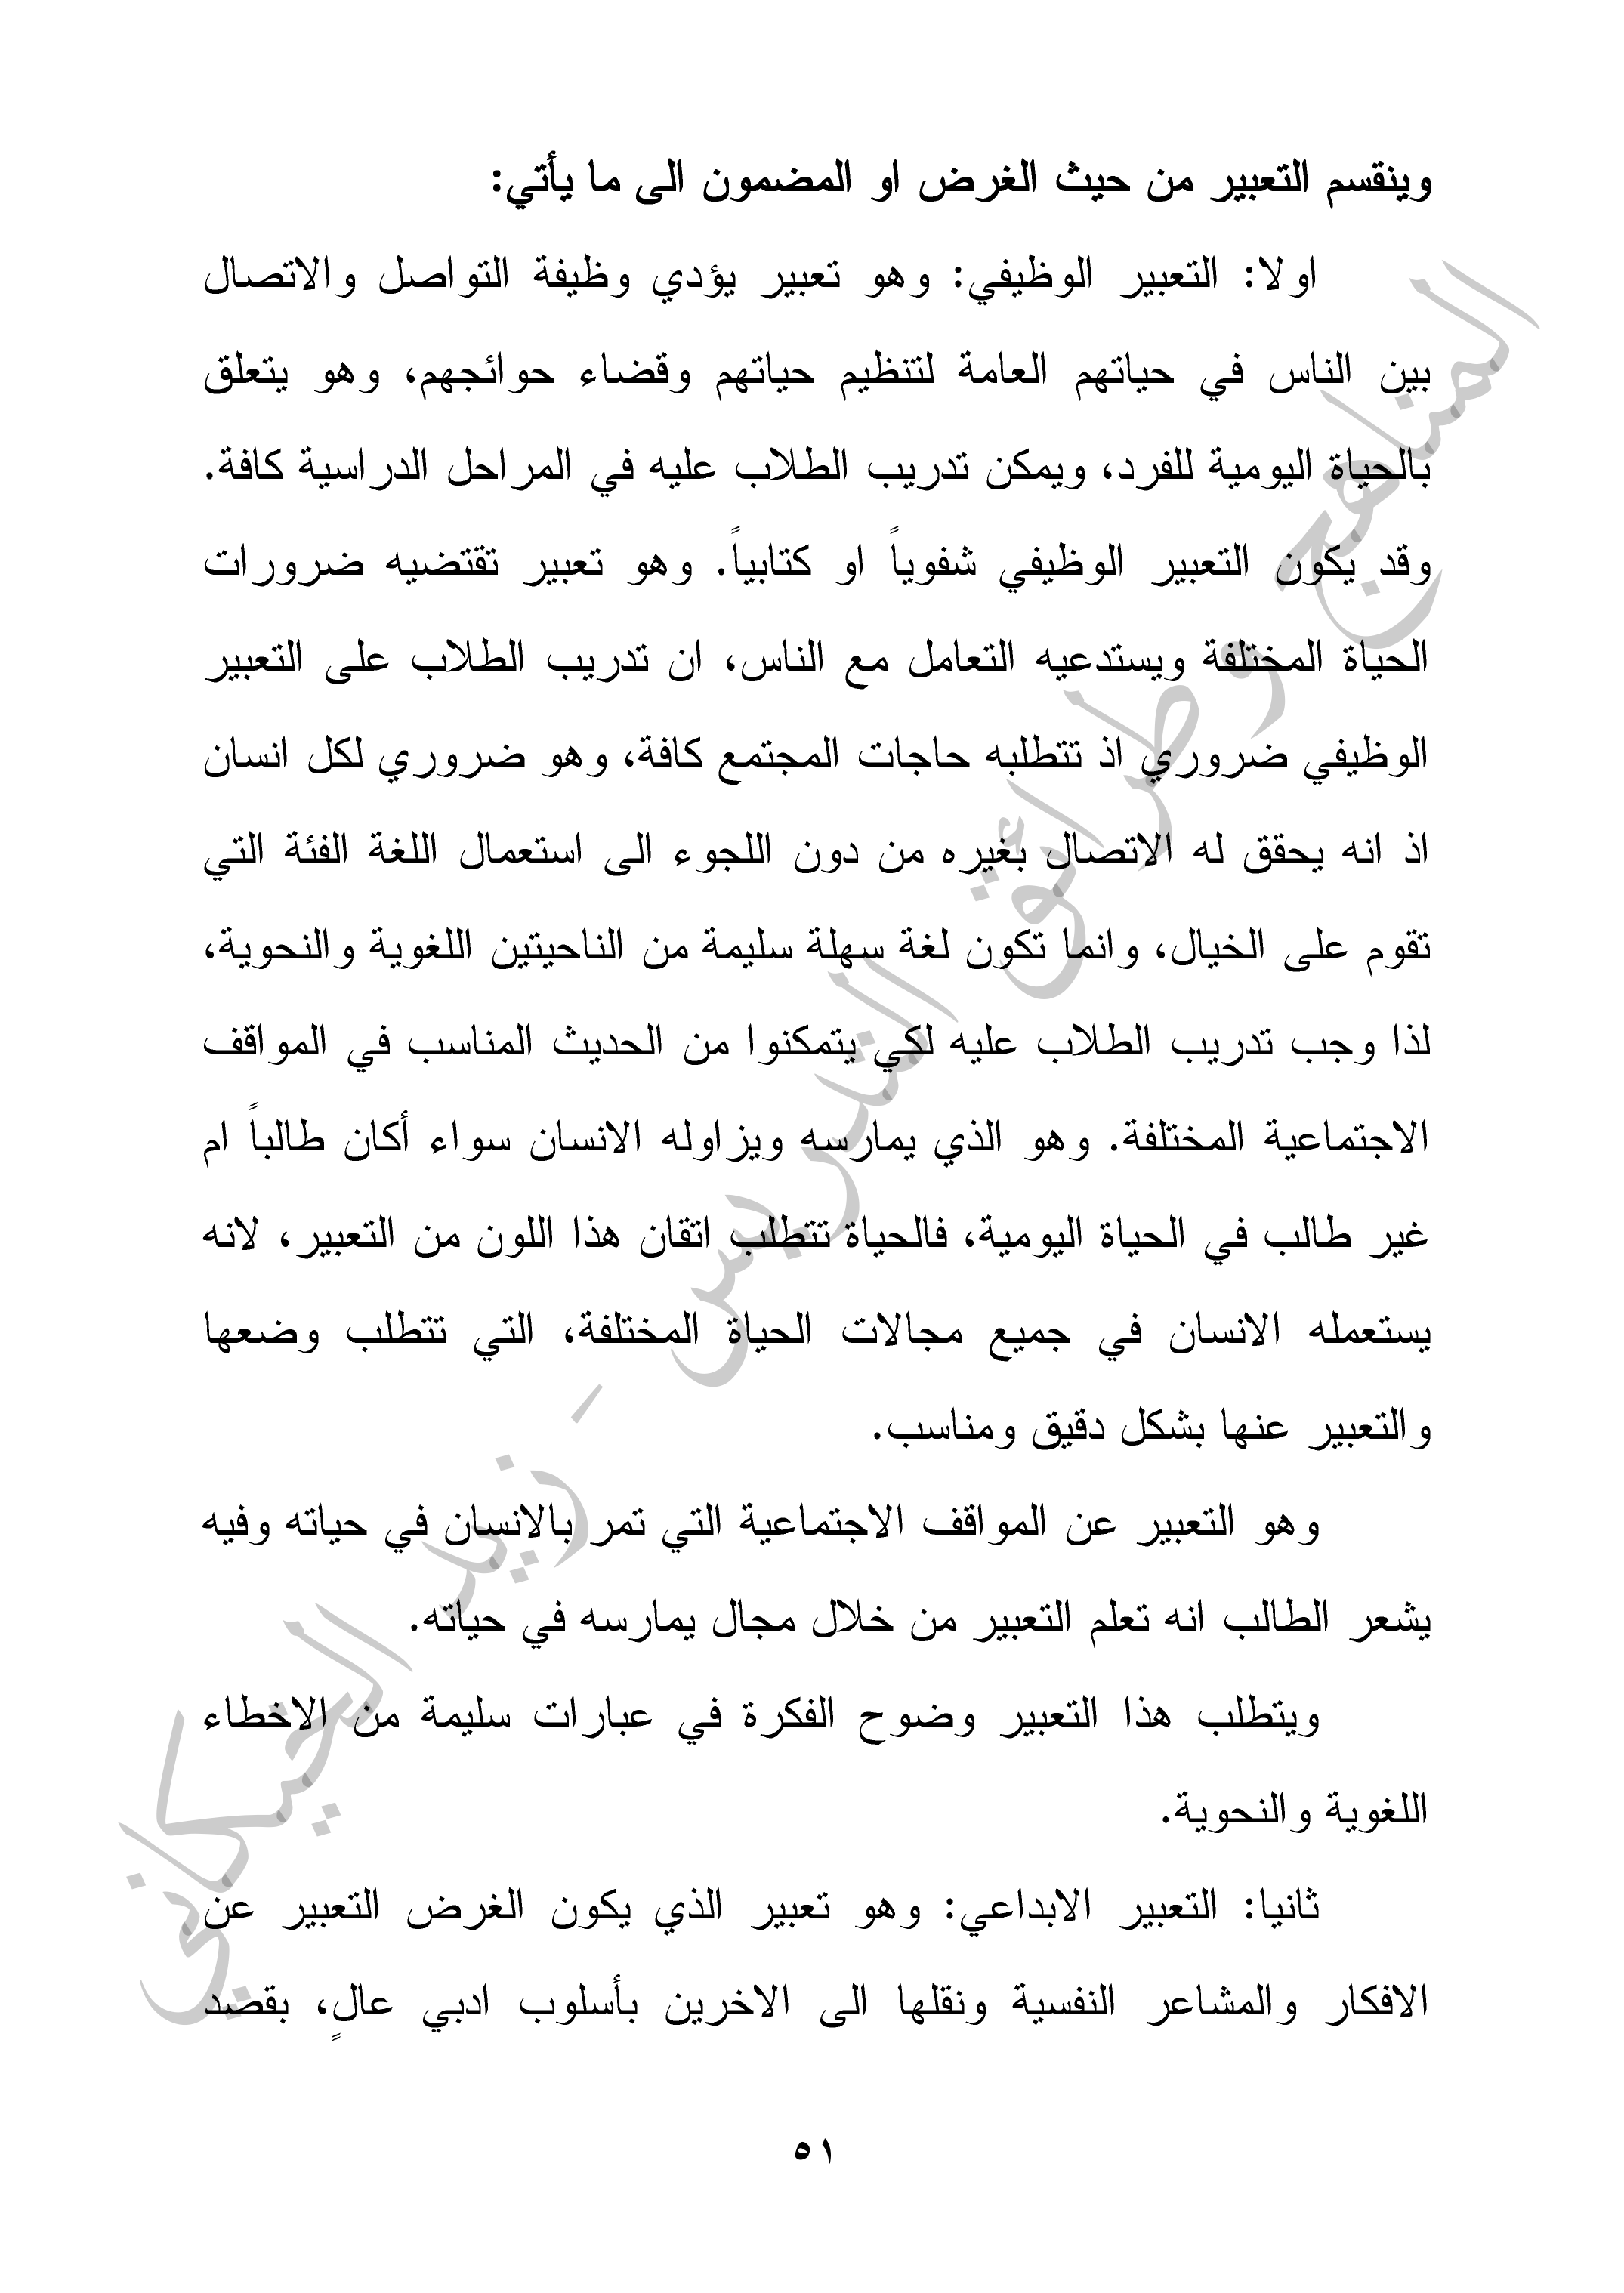 وينقسم التعبير من حيث الغرض او المضمون الى ما يأتي:
اولا: التعبير الوظيفي: وهو تعبير يؤدي وظيفة التواصل والاتصال
بين الناس في حياتهم العامة لتنظيم حياتهم وقضاء حوائجهم، وهو يتعلق
بالحياة اليومية للفرد، ويمكن تدريب الطلاب عليه في المراحل الدراسية كافة.
وقد يكون التعبير الوظيفي شفوياً او كتابياً. وهو تعبير تقتضيه ضرورات
الحياة المختلفة ويستدعيه التعامل مع الناس، ان تدريب الطلاب على التعبير
الوظيفي ضروري اذ تتطلبه حاجات المجتمع كافة، وهو ضروري لكل انسان
اذ انه يحقق له الاتصال بغيره من دون اللجوء الى استعمال اللغة الفئة التي
تقوم على الخيال، وانما تكون لغة سهلة سليمة من الناحيتين اللغوية والنحوية،
لذا وجب تدريب الطلاب عليه لكي يتمكنوا من الحديث المناسب في المواقف
الاجتماعية المختلفة. وهو الذي يمارسه ويزاوله الانسان سواء أكان طالباً ام
غير طالب في الحياة اليومية، فالحياة تتطلب اتقان هذا اللون من التعبير، لانه
يستعمله الانسان في جميع مجالات الحياة المختلفة، التي تتطلب وضعها
والتعبير عنها بشكل دقيق ومناسب.
وهو التعبير عن المواقف الاجتماعية التي تمر بالانسان في حياته وفيه
يشعر الطالب انه تعلم التعبير من خلال مجال يمارسه في حياته.
ويتطلب هذا التعبير وضوح الفكرة في عبارات سليمة من الاخطاء
اللغوية والنحوية.
ثانيا: التعبير الابداعي: وهو تعبير الذي يكون الغرض التعبير عن
الافكار والمشاعر النفسية ونقلها الى الاخرين بأسلوب ادبي عالٍ، بقصد
٥١
المناهج وطرائق التدريس - زيد الخيكاني